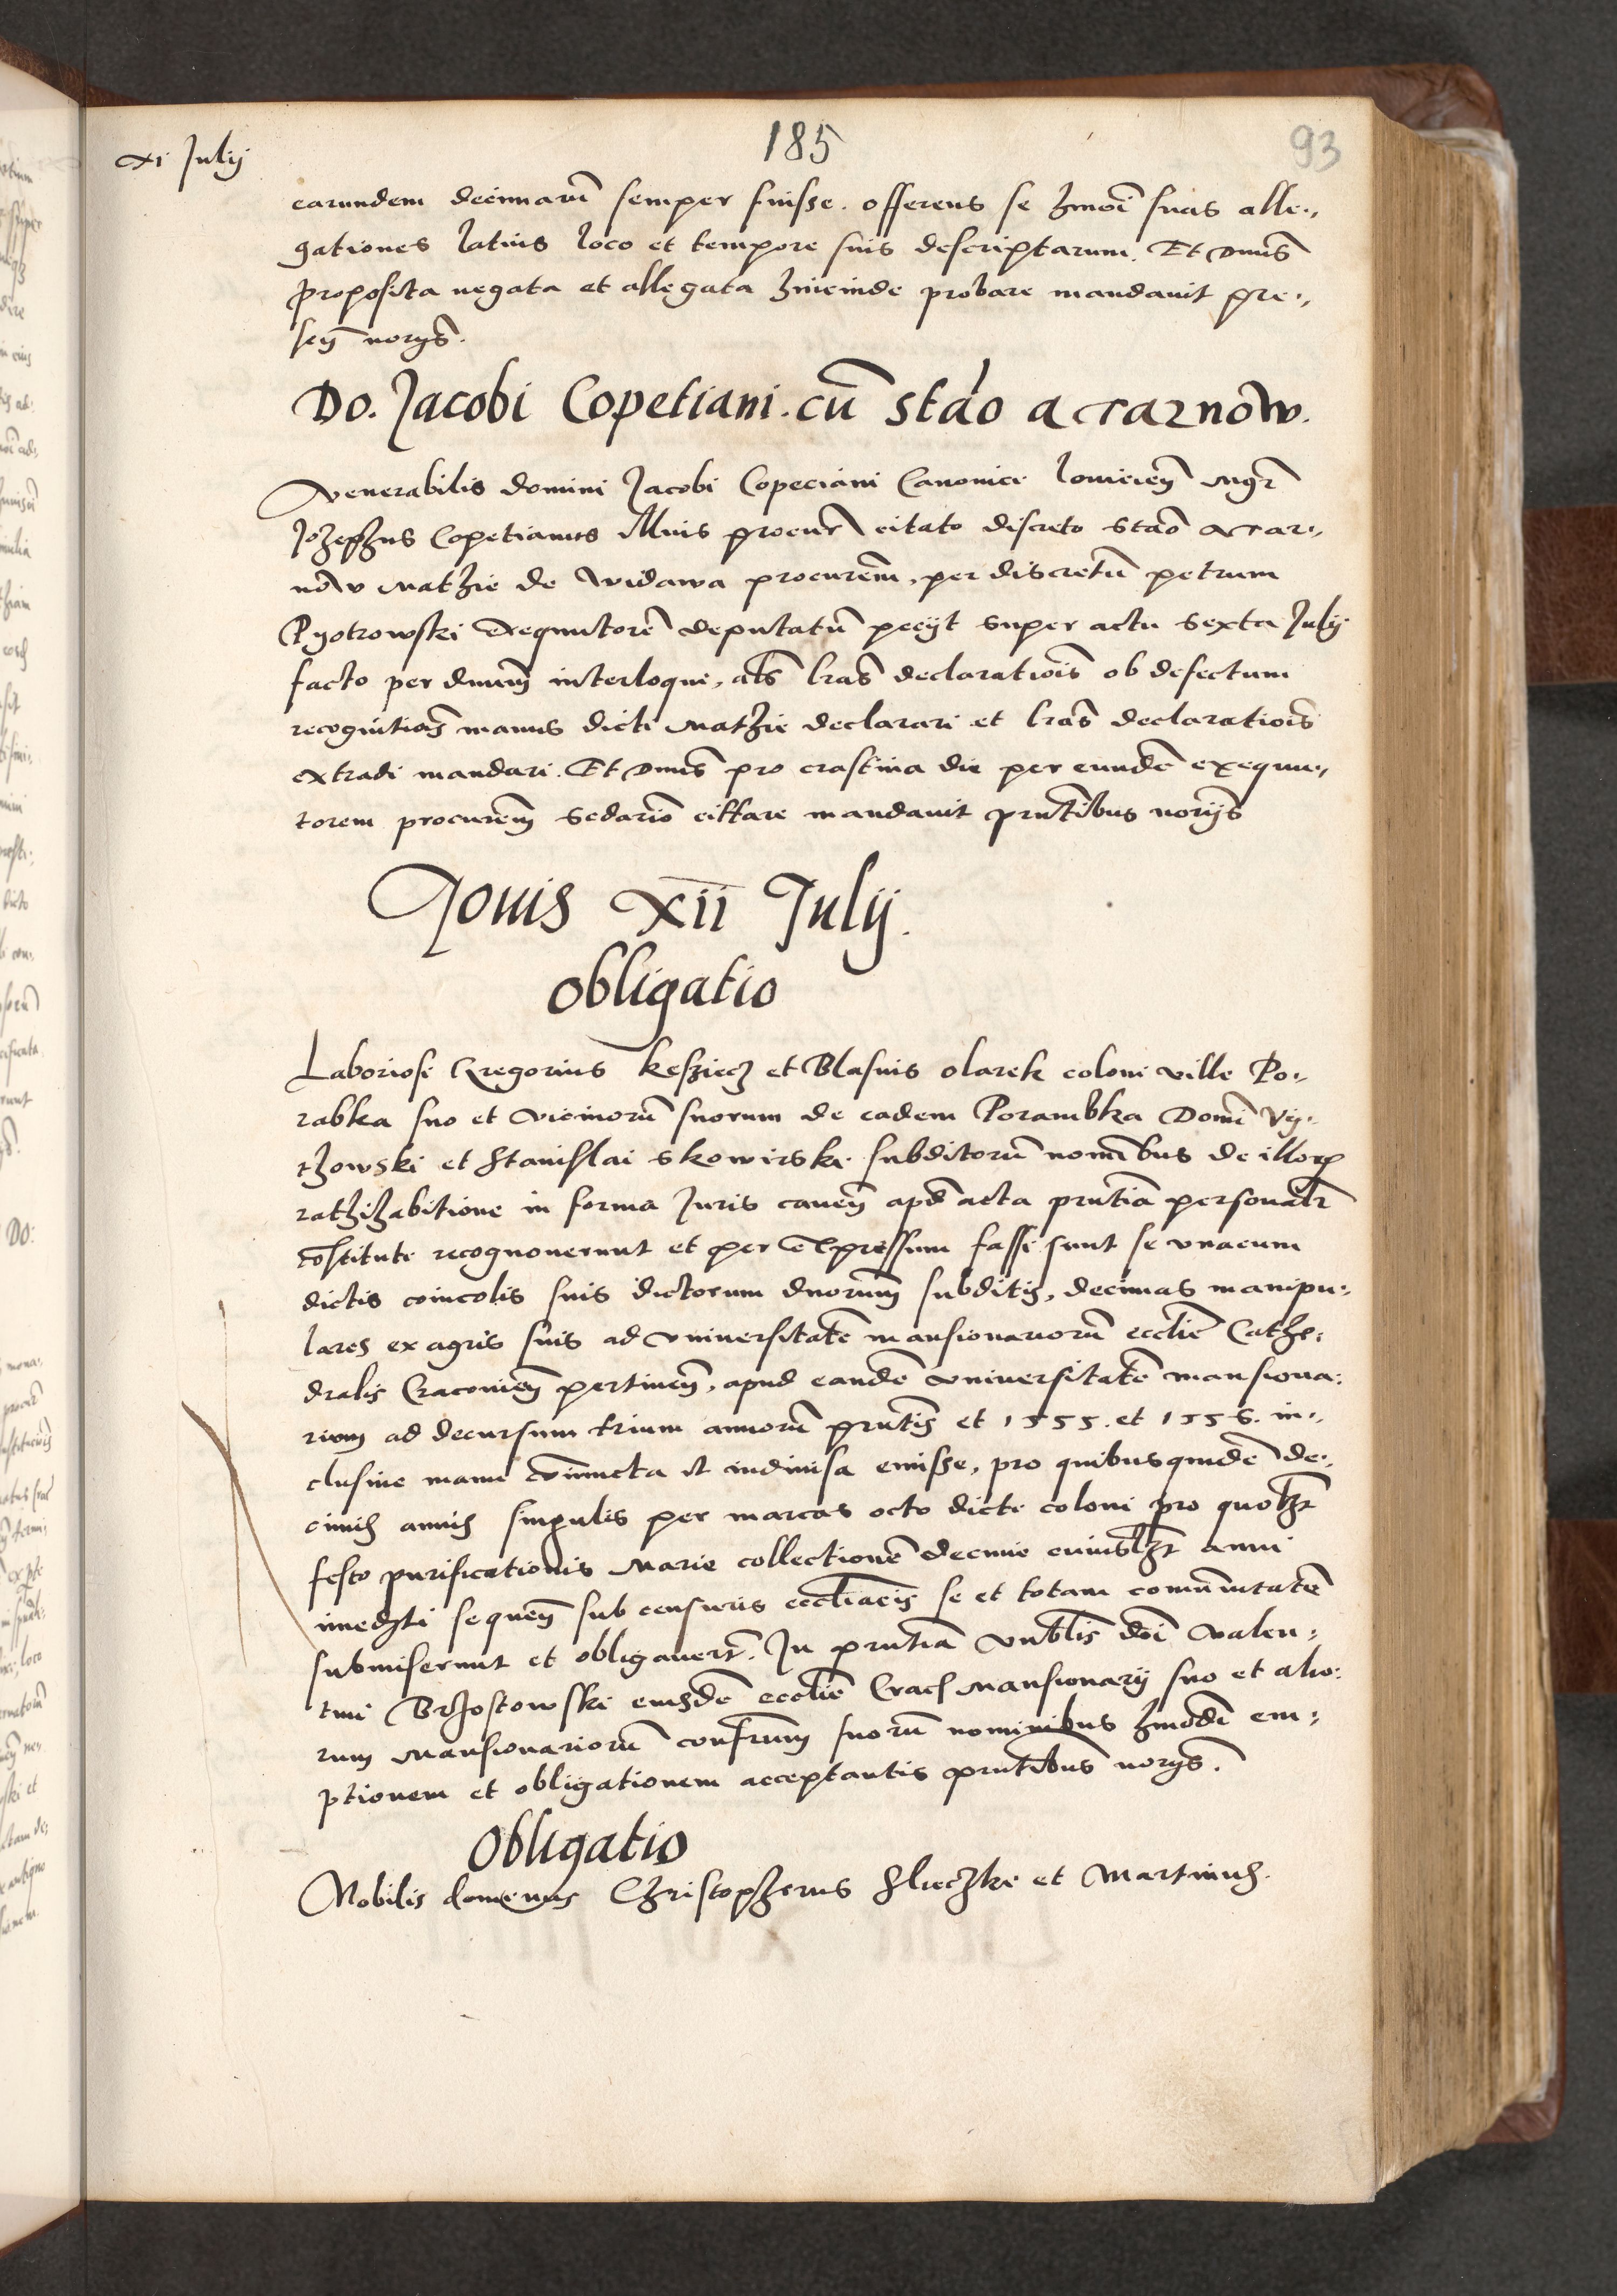 xi Julij
185
93
earundem decimarū semper fuisse. offerens se hmōi suas alle-
gationes latius loco et tempore suis descriptarum. Et Dnus
proposita negata et allegata hincinde probare mandavit pre-
sen norijs.
Do. Jacobi Copetiani. cū stāo a Tarnow.
Venerabilis domini Jacobi Copeciani Canonici lovicien Mgr
Jozephus Copetianus illius procur citato discreto Stāo a Tar-
now Mathie de Widawa procurem, per discretū petrum
Pyotrowski Exequutorē deputatū petijt super actu sexta Julij
facto per dnum interloqui, als lras declaratiois ob defectum
recognitiois manus dicti Mathie declarari et lras declaratiois
extradi mandari. Et Dnus pro crastina die per eundē exequu-
torem procurem sedariō cittare mandavit pntibus norijs
Jovis XII Julij.
Obligatio
Laboriosi Gregorius kesziecz et Blasius olarek coloni ville Po-
rabka suo et vicinorū suorum de eadem Porambka Domī Vy-
tzowski et Stanislai Skowirski subditorū nomībus de illorum
rathihabitione in forma Juris caven apd acta pntia personalr
cōstituti recognoverunt et per expressum fassi sunt se unacum
dictis coincolis suis dictorum dnorum subditis, decimas manipu-
lares ex agris suis ad universitatē mansionariorū ecclie Cathe-
dralis Cracovien pertinen, apud eandē universitatē mansiona-
riorum ad decursum trium annorū pntis et 1555. et 1556. in-
clusive manu cōiuncta et indivisa emisse, pro quibusquidē de-
cimis annis singulis per marcas octo dicti coloni pro quolzt
festo purificationis Marie collectionē decimie cuiuslzt anni
imedte sequen sub censuris eccliacis se et totam comūnitatē
submiserunt et obligavert. In pntia vnblis dni Valen-
tini Brzostowski eiusdē ecclie Crac Mansionarij suo et alio-
rum Mansionariorū confrum suorū nominibus hmodi em-
ptionem et obligationem acceptantis pntibus norijs.
Obligatio
Nobilis dominus Christopherus Slieczki et Martinus